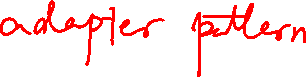 adapter pattern